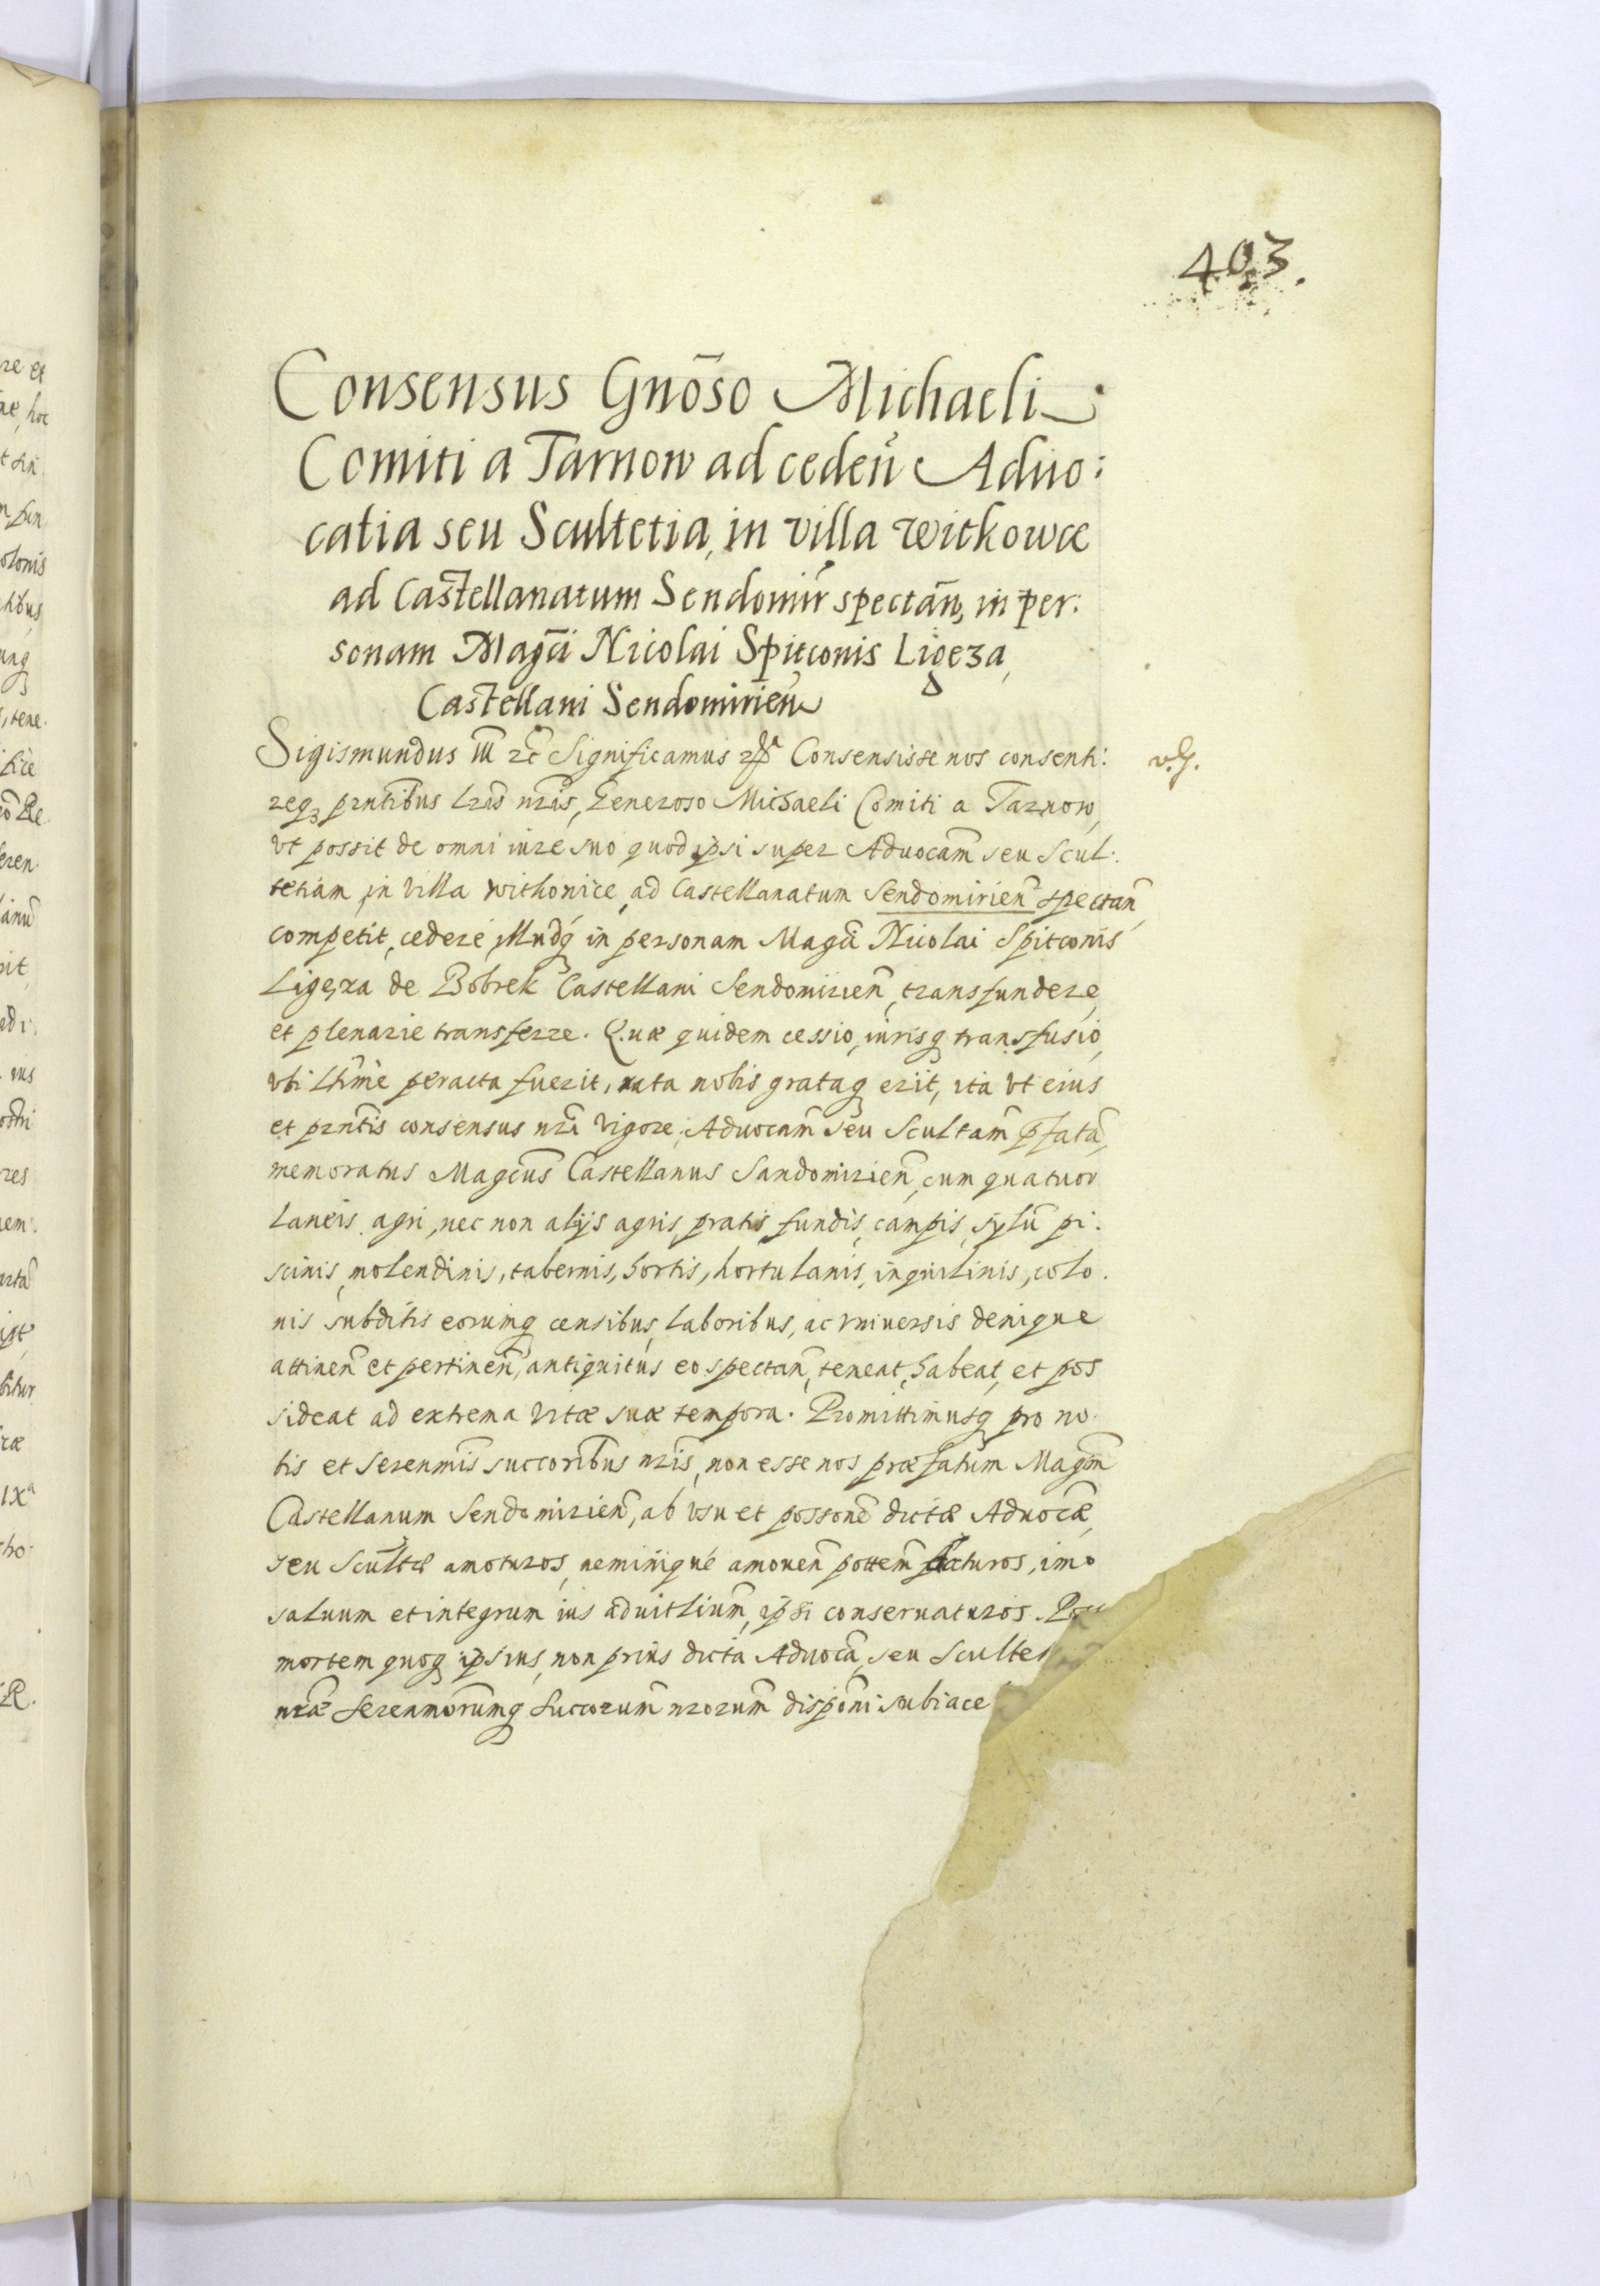 403.
Consensus Gnõso Michaeli
Comiti a Tarnow ad cedeñ Aduo:
catia seu Scultetia, in villa Witkowce
ad Castellanatum Sendomir̃ spectañ, in per:
sonam Magc̃i Nicolai Spitconis Ligęza,
Castellani Sendomirieñ
Sigismundus III zc̃ Significamus Consensisse nos consenti:
reqꝫ pr̃ntibus Lr̃is nr̃is, Generoso Michaeli Comiti a Tarnow,
vt possit de omni iure suo quod ipsi super Aduocam̃ seu Scul:
tetiam, in villa Withonice, ad Castellanatum Sendomirieñ spectañ,
competit, cedere, illudq́ in personam Magc̃i Nicolai Spitconis
Ligęza de Bobrek Castellani Sendomirieñ, transfundere,
et plenarie transferre. Quæ quidem cessio, iurisq transfusio,
vbi Ltĩme peracta fuerit, rata nobis grataq erit, ita vt eius
et pr̃ntis consensus nr̃i vigore, Aduocam̃ seu Scultam̃ p̃fatã,
memoratus Magc̃us Castellanus Sandomirieñ, cum quatuor
Laneis agri, nec non alijs agris, pratis, fundis, campis, sylũ pi:
scinis, molendinis, tabernis, hortis, hortulanis, inquilinis, colo.
nis subditis eorumq censibus, laboribus, ac vniuersis denique
attineñ et pertineñ, antiquitus eo spectañ, teneat, habeat, et pos
sideat ad extrema vitæ suæ tempora. Promittimusq pro no.
bis et Serenm̃is succorib̃us nr̃is, non esse nos præfatum Magc̃m
Castellanum Sendomirieñ, ab vsu et possonẽ dictæ Aduocæ̃,
seu Scultæ̃ amoturos, neminiquè amoueñ pottem̃ facturos, imo
saluum et integrum ius aduitlium̃, ipsi conseruaturos. Post
mortem quoq ipsius, non prius dicta Aduocã, seu Sculte
nr̃æ Serenm̃orumq Succorum̃ nr̃orum̃ dispõni subiace